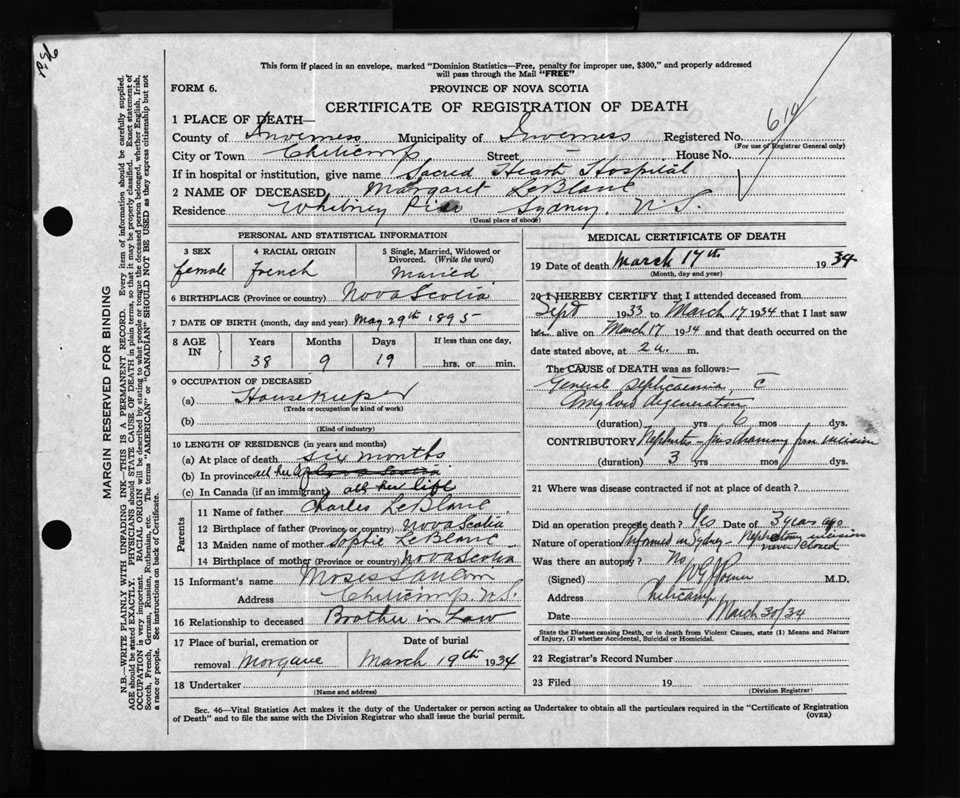 This form if placed in an envelope, marked "Dominion Statistics—Free, penalty for improper use, $300," and properly addressed
will pass through the Mail "FREE"
FORM 6.
PROVINCE OF NOVA SCOTIA
CERTIFICATE OF REGISTRATION OF DEATH
1 PLACE OF DEATH—
County of Inverness Municipality of Inverness Registered No. 619
(For use of Registrar General only)
City or Town Cheticamp Street — House No.
If in hospital or institution, give name Sacred Heart Hospital
2 NAME OF DECEASED Margaret LeBlanc
Residence Whitney Pier Sydney, N.S.
(Usual place of abode)
PERSONAL AND STATISTICAL INFORMATION
3 SEX
female
4 RACIAL ORIGIN
French
5 Single, Married, Widowed or
Divorced. (Write the word)
Married
6 BIRTHPLACE (Province or country) Nova Scotia
7 DATE OF BIRTH (month, day and year) May 29th 1895
8 AGE IN
Years Months Days If less than one day,
38 9 19 hrs. or min.
9 OCCUPATION OF DECEASED
(a) Housekeeper
(Trade or occupation or kind of work)
(b)
(Kind of industry)
10 LENGTH OF RESIDENCE (in years and months)
(a) At place of death six months
(b) In province all her life
(c) In Canada (if an immigrant) all her life
Parents
11 Name of father Charles LeBlanc
12 Birthplace of father (Province or country) Nova Scotia
13 Maiden name of mother Sophie LeBlanc
14 Birthplace of mother (Province or country) Nova Scotia
15 Informant's name Moses
Address Cheticamp, N.S.
16 Relationship to deceased Brother in Law
17 Place of burial, cremation or
removal Morgane
Date of burial
March 19th 1934
18 Undertaker
(Name and address)
MEDICAL CERTIFICATE OF DEATH
19 Date of death March 17th 1934
(Month, day and year)
20 I HEREBY CERTIFY that I attended deceased from
Sept 1933 to March 17 1934 that I last saw
h alive on March 17 1934 and that death occurred on
date stated above, at 2 a. m.
The CAUSE OF DEATH was as follows:—
General Septicaemia, c̄
Amyloid degeneration
(duration) yrs 6 mos dys.
CONTRIBUTORY Nephritis – pus draining from incision
(duration) 3 yrs mos dys.
21 Where was disease contracted if not at place of death?
Did an operation precede death? Yes Date of 3 years ago
Nature of operation Performed in Sydney – Nephrotomy incision
never closed
Was there an autopsy? No
(Signed) M.D.
Address Cheticamp
Date March 30/34
State the Disease causing Death, or in death from Violent Causes, state (1) Means and Nature
of Injury, (2) whether Accidental, Suicidal or Homicidal.
22 Registrar's Record Number
23 Filed 19
(Division Registrar)
Sec. 46—Vital Statistics Act makes it the duty of the Undertaker or person acting as Undertaker to obtain all the particulars required in the "Certificate of Registration
of Death" and to file the same with the Division Registrar who shall issue the burial permit.
(OVER)
MARGIN RESERVED FOR BINDING
N.B.—WRITE PLAINLY WITH UNFADING INK—THIS IS A PERMANENT RECORD. Every item of information should be carefully supplied.
AGE should be stated EXACTLY. PHYSICIANS should STATE CAUSE OF DEATH in plain terms, so that it may be properly classified. Exact statement of
OCCUPATION is very important. RACIAL ORIGIN will be described by stating to what people or tongue the deceased person belonged, whether English, Irish,
Scotch, French, German, Russian, Ruthenian, etc. The terms "AMERICAN" or "CANADIAN" SHOULD NOT BE USED as they express citizenship but not
a race or people. See instructions on back of Certificate.